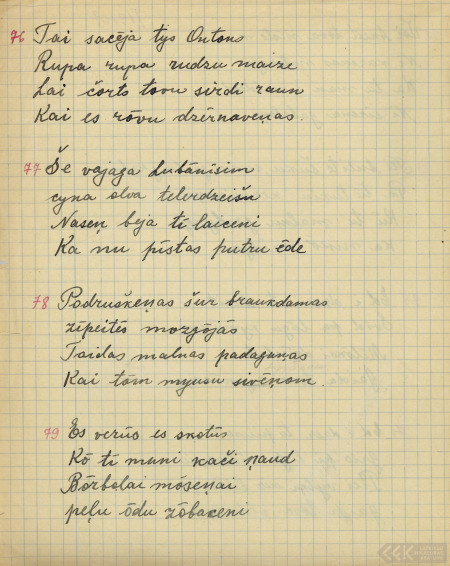 76 Tai sacēja tys Ontons
Rupa rupa rudzu maize
Lai čorts tovu sirdi raun
Kai es rōvu dzērnaveņas.
77 Še vajaga Lubānīsim
cyna olva telerdzeišu
Naseņ beja tī laiceni
Ka nu pīstas putru ēde
78 Podruškeņas šur braukdamas
zipeitēs mozgōjās
Taidas malnas padaguņas
Kai tōm myusu sivēņom.
79 Es verūs es skotūs
Kō tī muni kači ņaud
Bōrbolai mōseņai
peļu ōdu zōbaceni